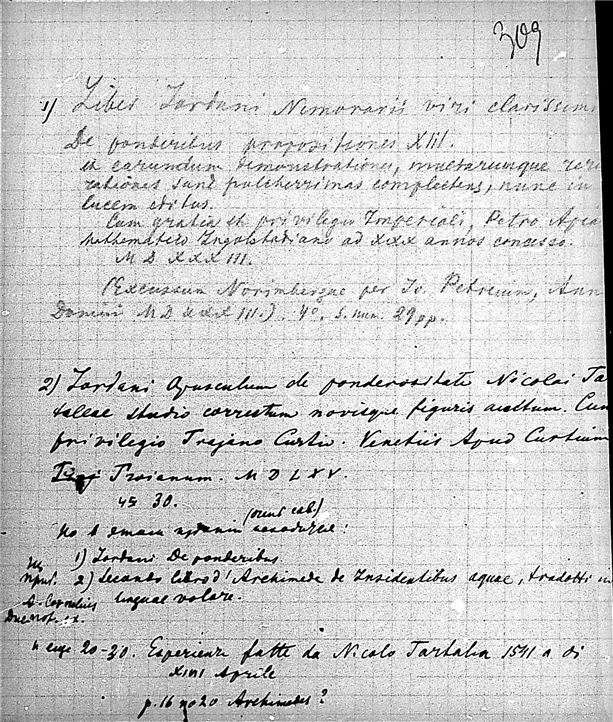 309
1) Liber Iordani Nemorarii viri clarissimi
De ponderibus propositiones XIII.
et earundem demonstrationes, multarumque rerum
rationes sane pulcherrimas complectens, nunc in
lucem editus.
Cum gratia et privilegio Imperiali, Petro Apia
mathematico Ingolstadiano ad XXX annos concesso.
M D XXX III.
(Excussum Norimbergae per Io. Petreium, Anno
Domini M D XXX III.) 4°. S. num. 29 pp.
2) Iordani Opusculum de ponderositate Nicolai Tar
taleae studio correctum novisque figuris auctum. Cum
privilegio Trajano Curtio. Venetiis Apud Curtium
Troianum. M D L X V.
30.
1) Iordani De ponderibus
2) Secondo libro d'Archimede de Insidentibus aquae, tradotti in
linguae volare.
20-30. Esperienze fatte da Nicolo Tartalea 1541 a di
XIIII Aprile
p. 16 no 20 Archimedes?